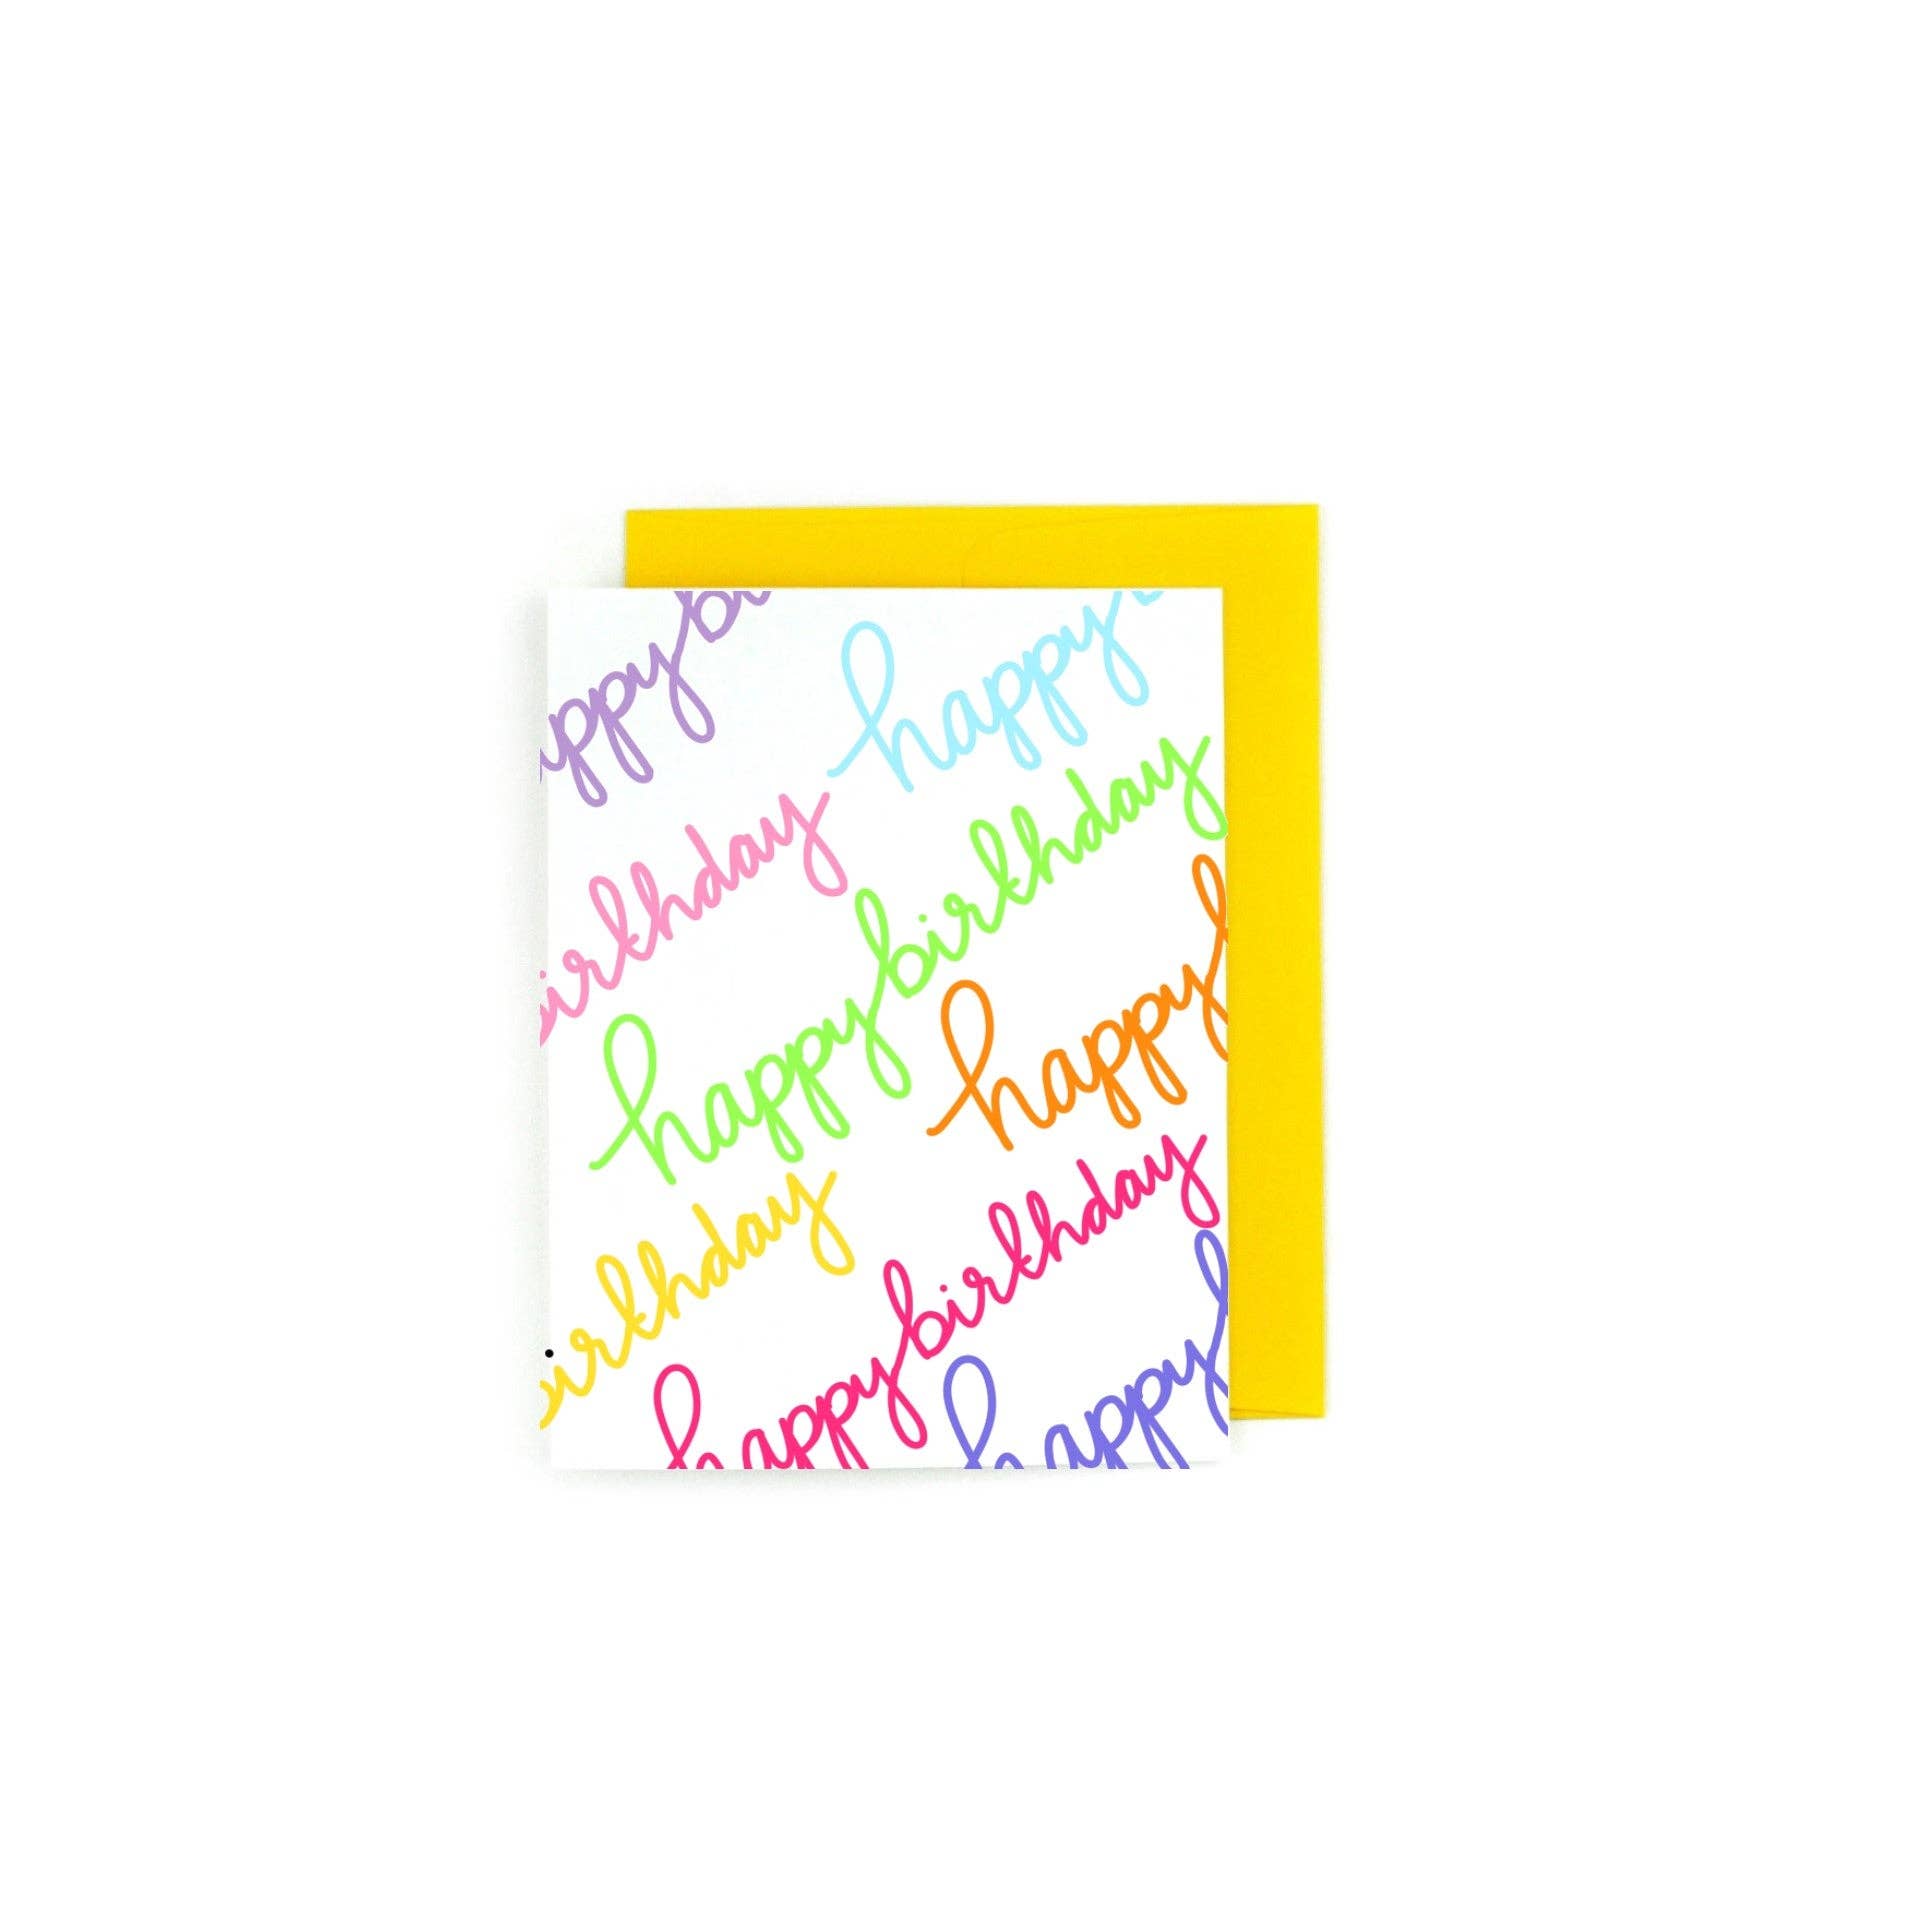 happy bi
happy b
birthday
happy birthday
happy
birthday
happy birthday
happy